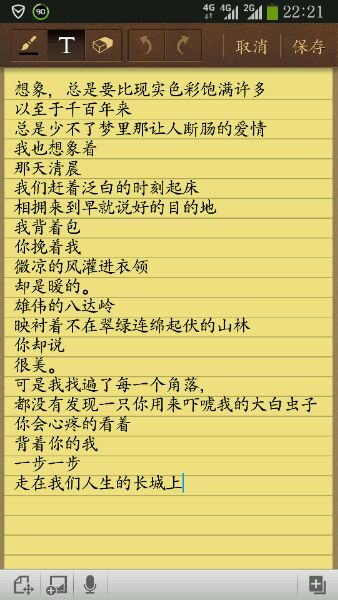 90
4G 4G 2G 22:21
T 取消 保存
想象，总是要比现实色彩饱满许多
以至于千百年来
总是少不了梦里那让人断肠的爱情
我也想象着
那天清晨
我们赶着泛白的时刻起床
相拥来到早就说好的目的地
我背着包
你挽着我
微凉的风灌进衣领
却是暖的。
雄伟的八达岭
映衬着不在翠绿连绵起伏的山林
你却说
很美。
可是我找遍了每一个角落，
都没有发现一只你用来吓唬我的大白虫子
你会心疼的看着
背着你的我
一步一步
走在我们人生的长城上